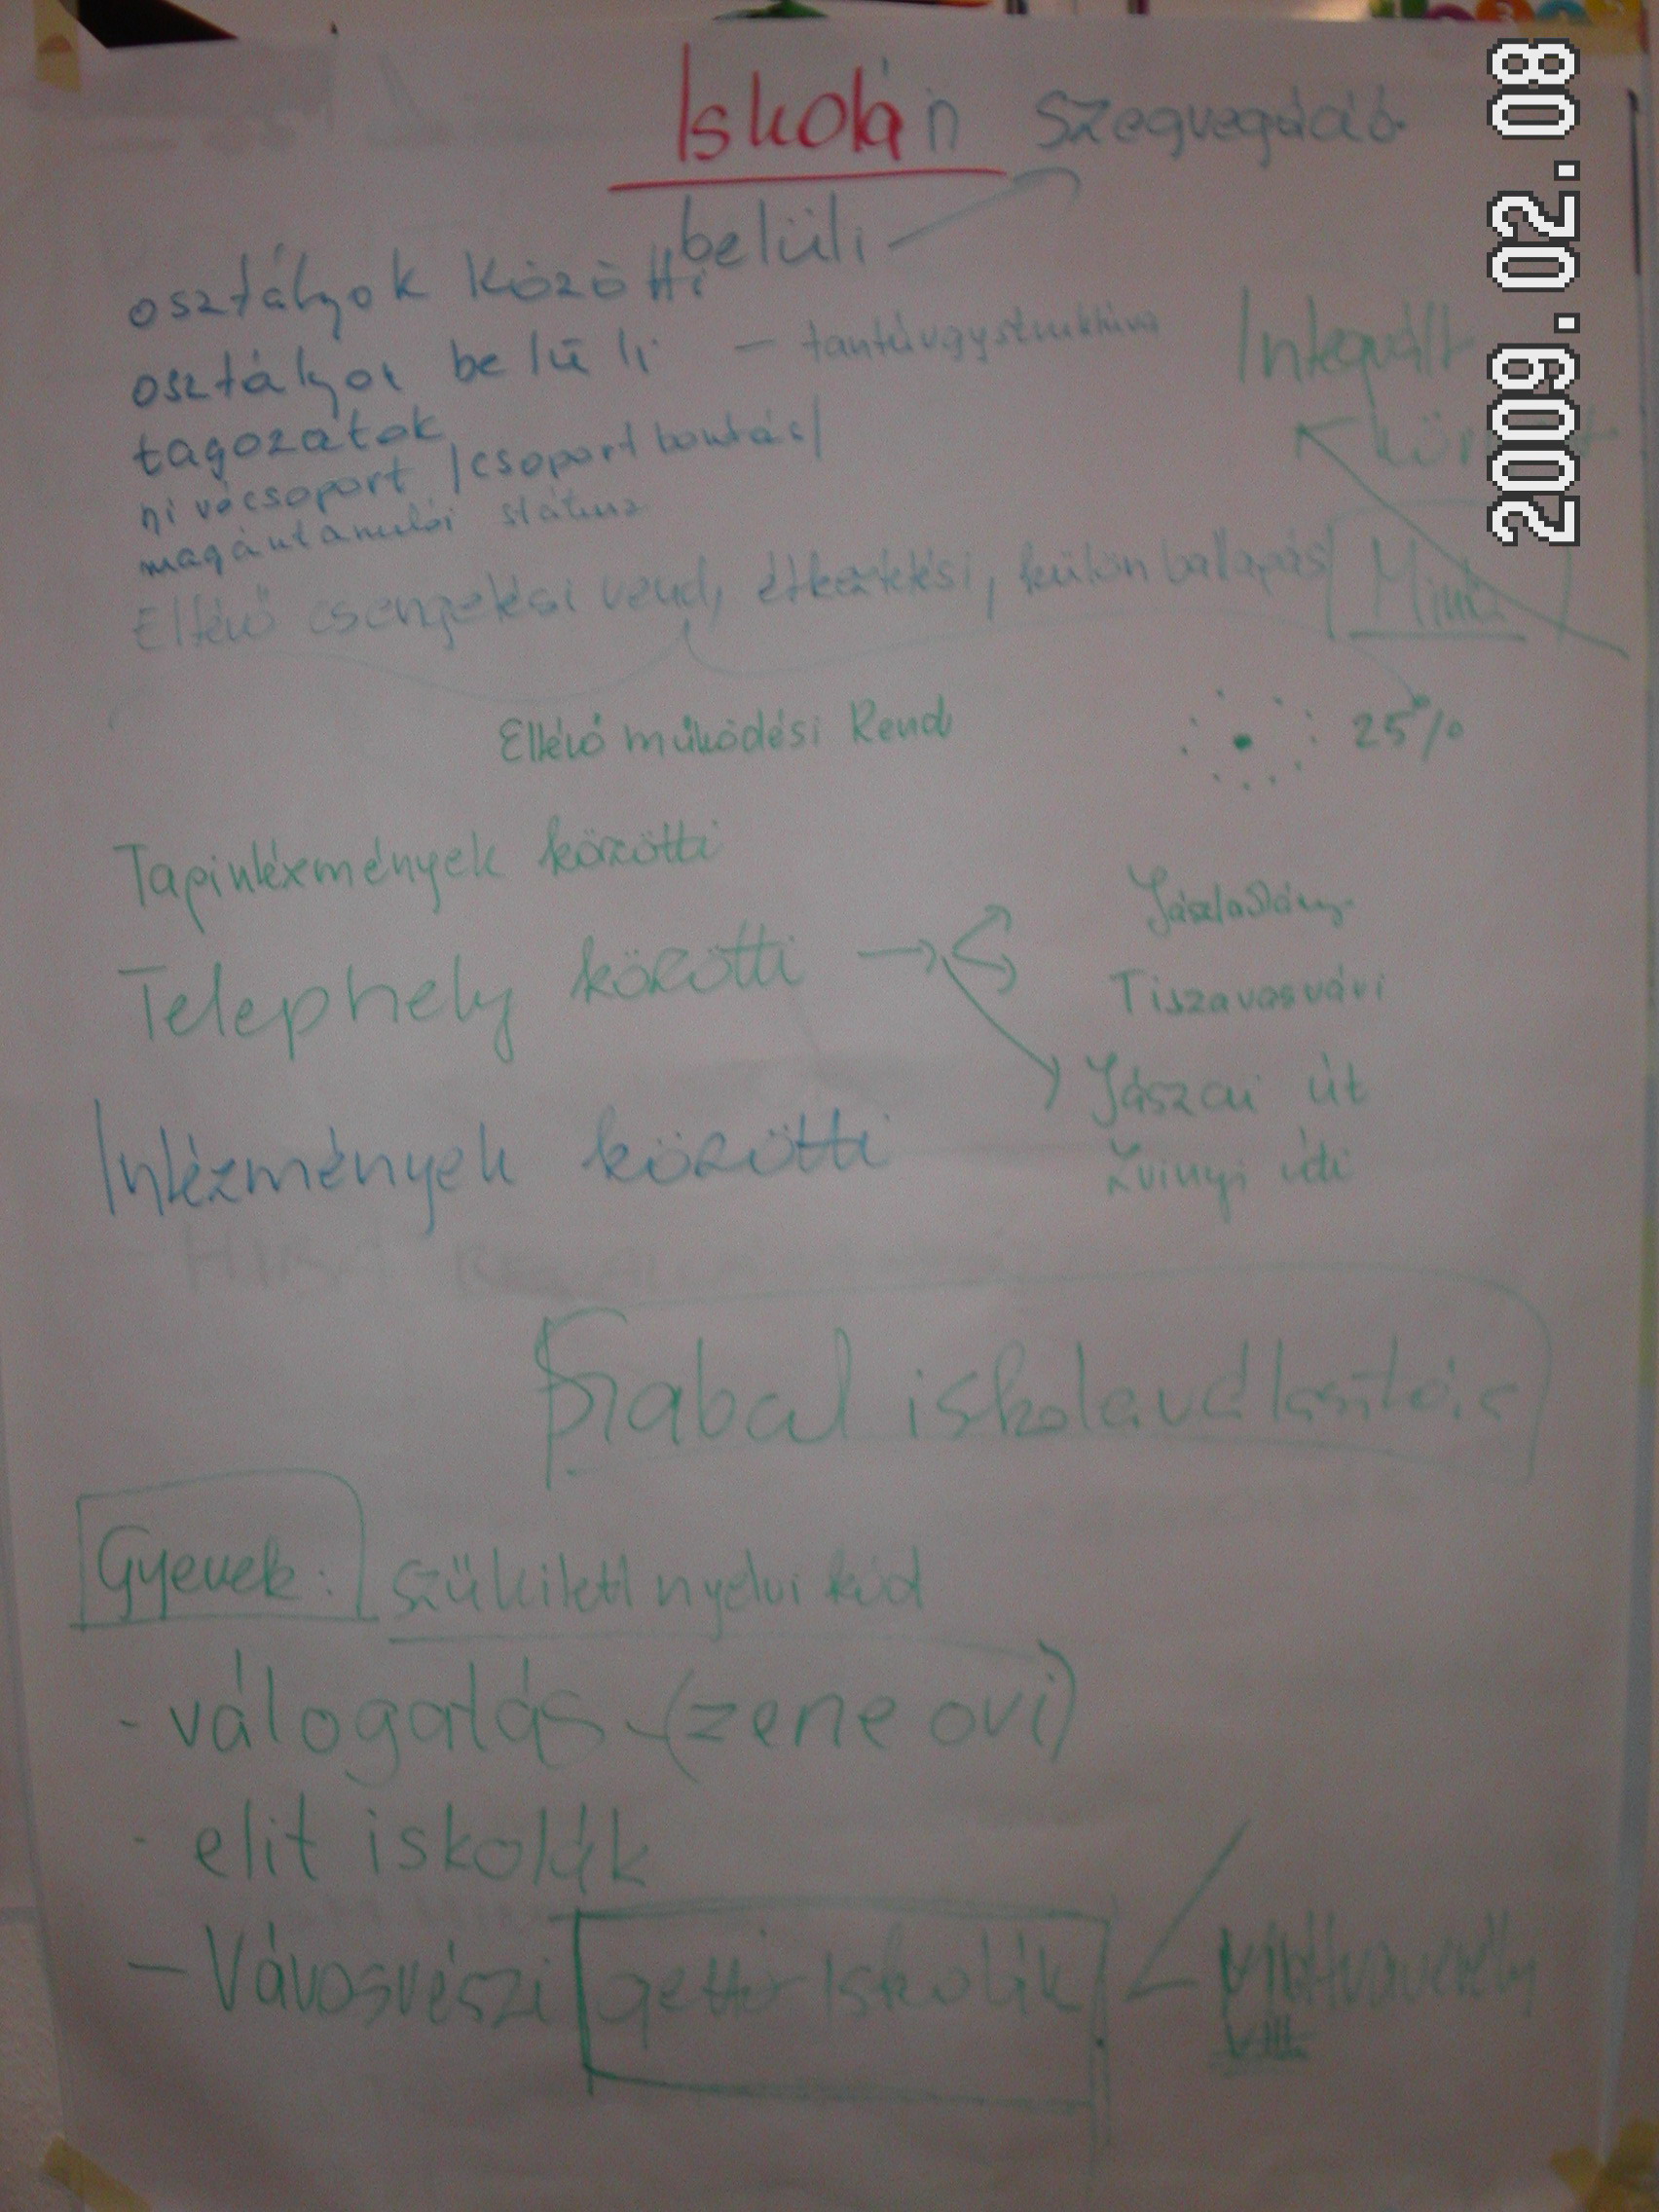 Iskolán szegregáció
belüli
osztályok közötti
osztályon belüli - tantárgystruktúra
Integrált
tagozatok
nívócsoport /csoport bontás/
magántanulói státusz
Eltérő csengetési rend, étkeztetési, külön ballagás
Eltérő működési Rend
25%
Tagintézmények közötti
Jászladány
Telephely közötti
Tiszavasvári
Jászai út
Intézmények közötti
Zrínyi úti
Szabad iskolaválasztás
Gyerek: szűkített nyelvi kód
- válogatás - (zene ovi)
- elit iskolák
- Városrészi gettó iskolák
2009.02.08